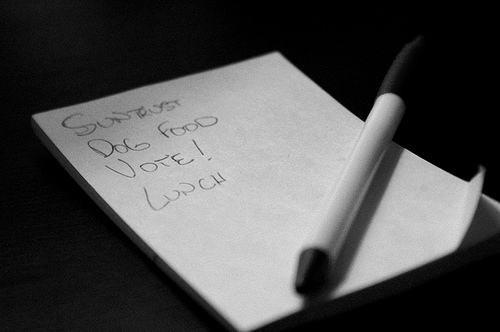 SUNTRUST
DOG FOOD
VOTE!
LUNCH